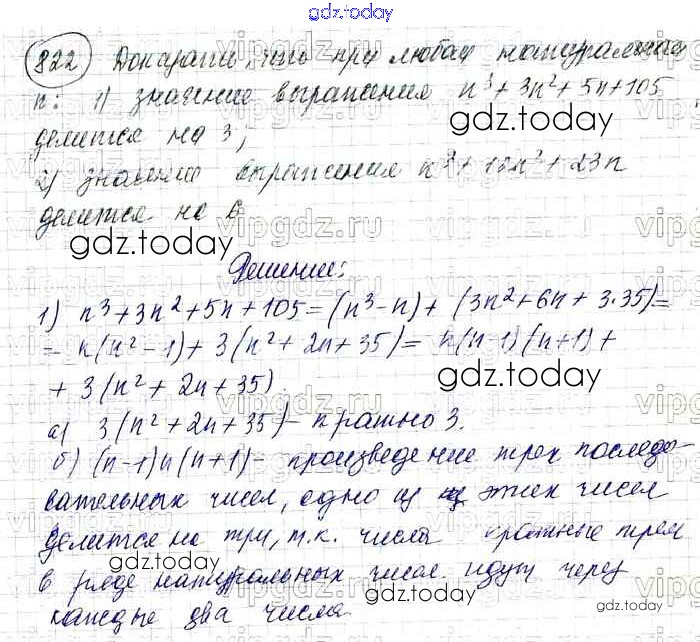 gdz.today
822 Доказать, что при любом натуральном
n: 1) значение выражения n³+3n²+5n+105
делится на 3;
gdz.today
2) значение выражения n³+ n²+23n
делится на 6
gdz.today
Решение:
1) n³+3n²+5n+105=(n³-n)+(3n²+6n+3·35)=
= n(n²-1)+3(n²+2n+35)= n(n-1)(n+1)+
+ 3(n²+2n+35).
gdz.today
а) 3(n²+2n+35)- кратно 3.
б) (n-1)n(n+1)- произведение трех последо-
вательных чисел, одно из этих чисел
делится на три, т.к. числа кратные трем
gdz.today
в ряде натуральных чисел идут через
каждые два числа
gdz.today
gdz.today
vipgdz.ru